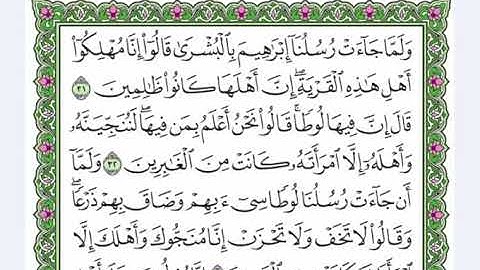 وَلَمَّا جَآءَتْ رُسُلُنَآ إِبْرَٰهِيمَ بِٱلْبُشْرَىٰ قَالُوٓا۟ إِنَّا مُهْلِكُوٓا۟
أَهْلِ هَٰذِهِ ٱلْقَرْيَةِ ۖ إِنَّ أَهْلَهَا كَانُوا۟ ظَٰلِمِينَ ٣١
قَالَ إِنَّ فِيهَا لُوطًا ۚ قَالُوا۟ نَحْنُ أَعْلَمُ بِمَن فِيهَا ۖ لَنُنَجِّيَنَّهُۥ
وَأَهْلَهُۥٓ إِلَّا ٱمْرَأَتَهُۥ كَانَتْ مِنَ ٱلْغَٰبِرِينَ ٣٢ وَلَمَّآ
أَن جَآءَتْ رُسُلُنَا لُوطًا سِىٓءَ بِهِمْ وَضَاقَ بِهِمْ ذَرْعًا ۖ
وَقَالُوا۟ لَا تَخَفْ وَلَا تَحْزَنْ ۖ إِنَّا مُنَجُّوكَ وَأَهْلَكَ إِلَّا